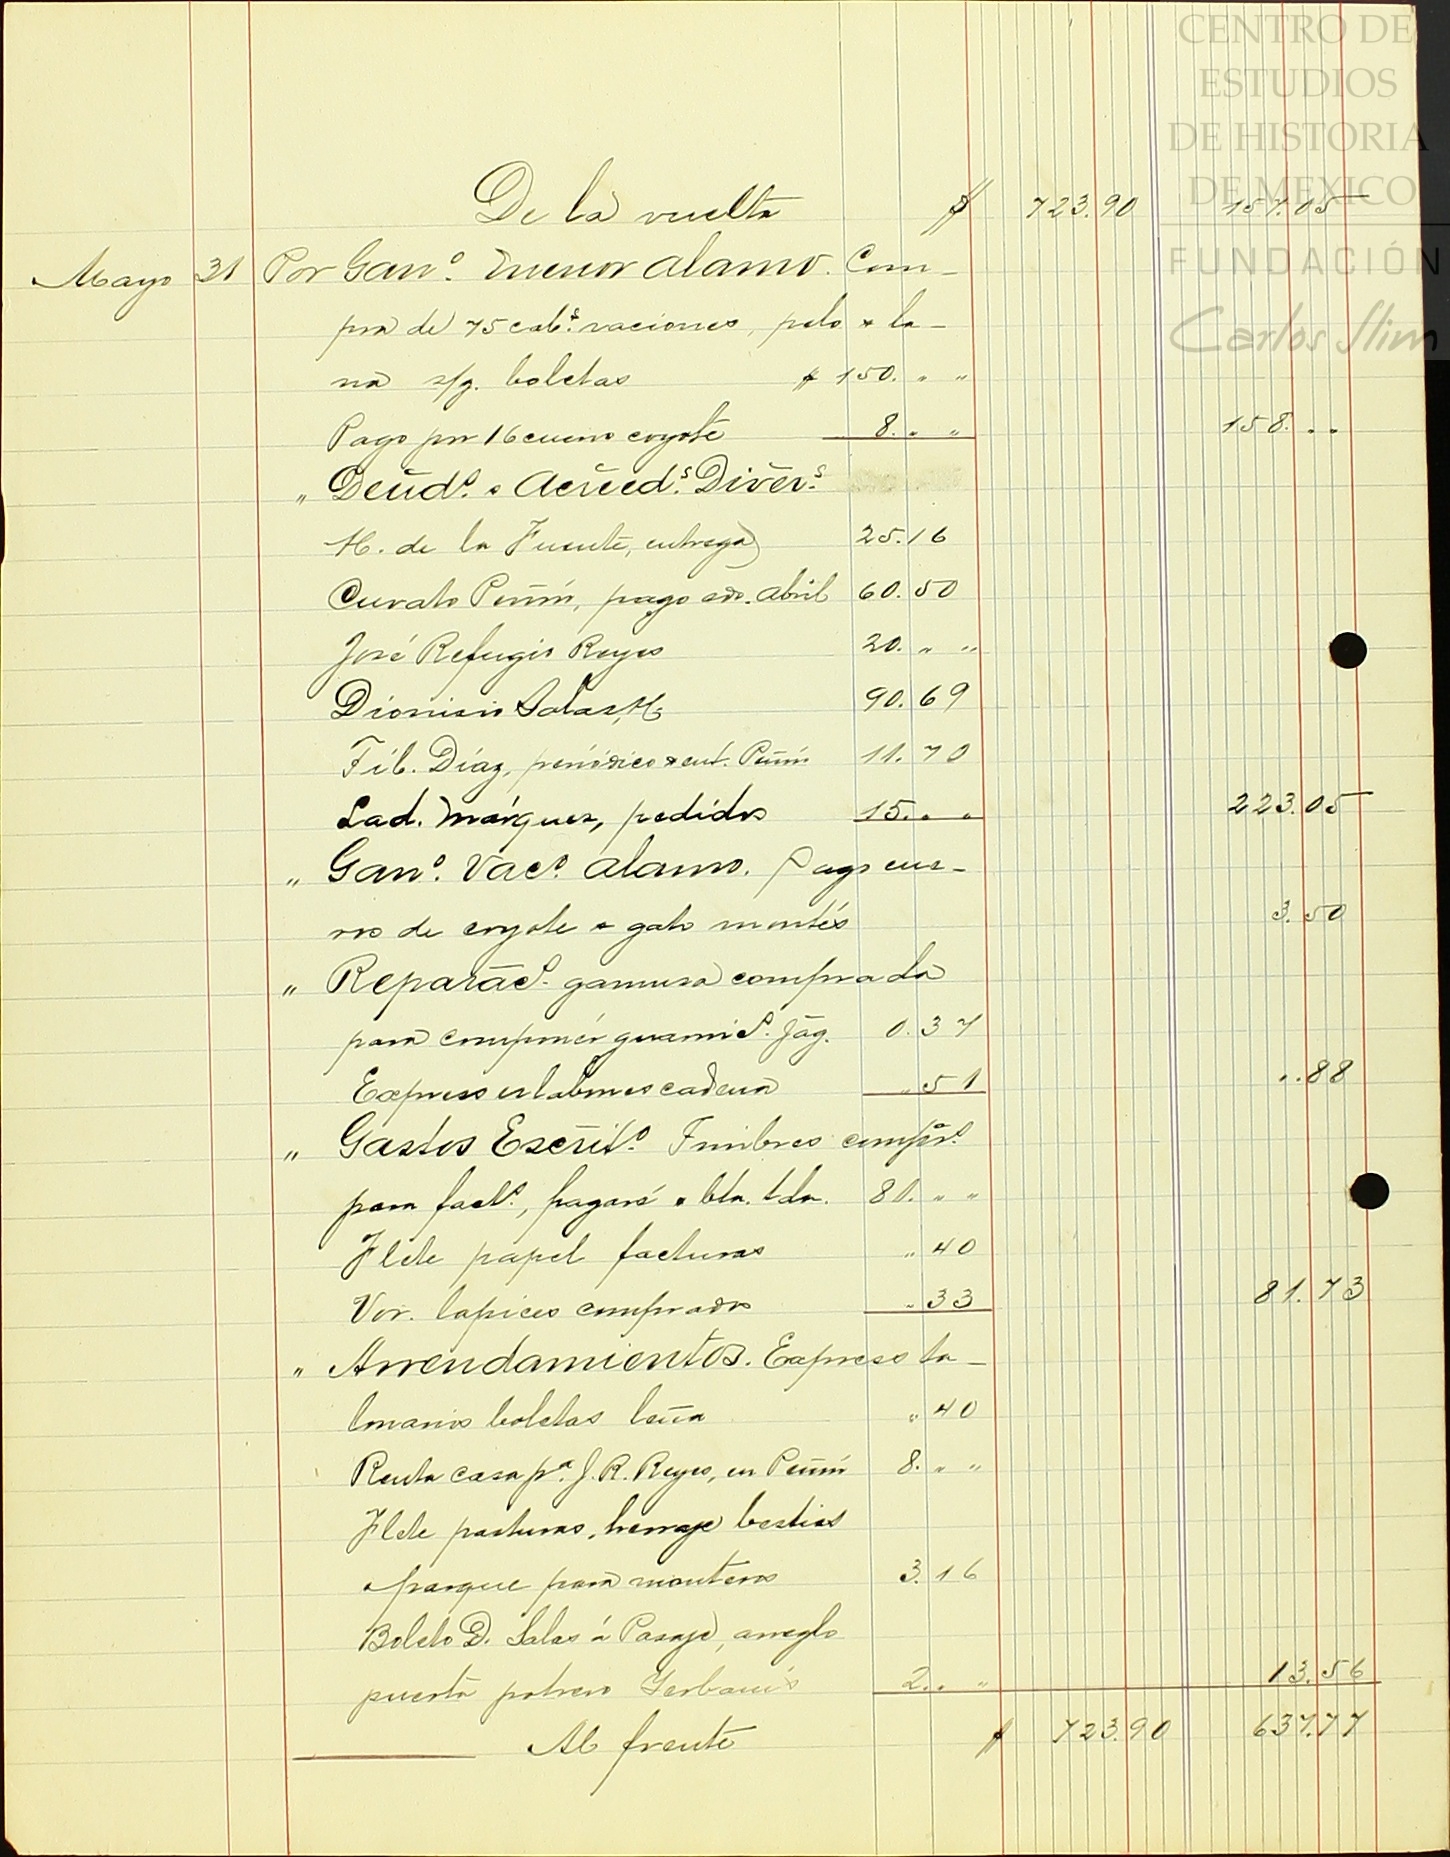 CENTRO DE
ESTUDIOS
DE HISTORIA
DE MEXICO
FUNDACIÓN
Carlos Slim
De la vuelta $ 723.90 157.05
Mayo 31 Por Gan.º menor Alamo. Com-
pra de 75 cab.s raciones, pelo & la-
na s/g. boletas $ 150. " "
Pago por 16 cueros coyote 8. " " 158. " "
" Deud.s & Acreed.s Divers.s
M. de la Fuente, entrega 25.16
Curato Peñón, pago edo. Abril 60.50
José Refugio Reyes 20. " "
Dionisio Salas, 90.69
Fib. Díaz, periódico & Peñón 11.70
Lad. Márquez, pedidos 15. " " 223.05
" Gan.º Vac.º Alamo. Pago cue-
ros de coyote & gato montés 3.50
" Reparac.s gamusa comprada
para componer guarnic.s Jag. 0.37
Expreso eslabones cadena " 51 " .88
" Gastos Escrit.º Timbres compr.s
para fact.s, pagaré & 81. " "
Flete papel facturas " 40
Vor. lapices comprados " 33 81.73
" Arrendamientos. Expreso ta-
lonarios boletas leña " 40
Renta casa p.a J. R. Reyes, en Peñón 8. " "
Flete pasturas, herraje bestias
& parque para monteros 3.16
Boleto D. Salas á Pasaje, arreglo
puerta potrero 2. " " 13.56
Al frente $ 723.90 637.77